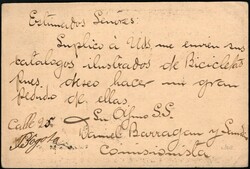 Estimados Señores:
Suplico à Uds. me envien sus
catalogos ilustrados de Bicicletas
pues, deseo hacer un gran
pedido de ellas.
Su Afmo S.S.
Daniel Barragan y
Comisionista
Calle 25.
Bogota